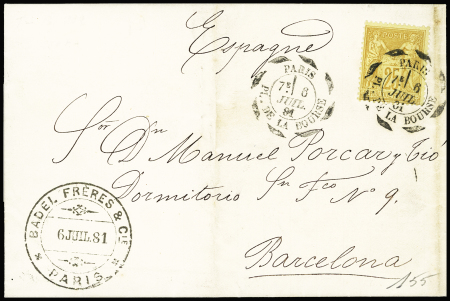 Espagne
POSTE
25
PARIS
7E 6
JUIL
81
PL. DE LA BOURSE
PARIS
7E 6
JUIL
81
PL. DE LA BOURSE
Sor Dn
D. Manuel Porcar y Tió
Dormitorio Sn Fco Nº 9.
Barcelona
BADEL FRÈRES & CIE
6 JUIL. 81
* PARIS *
155